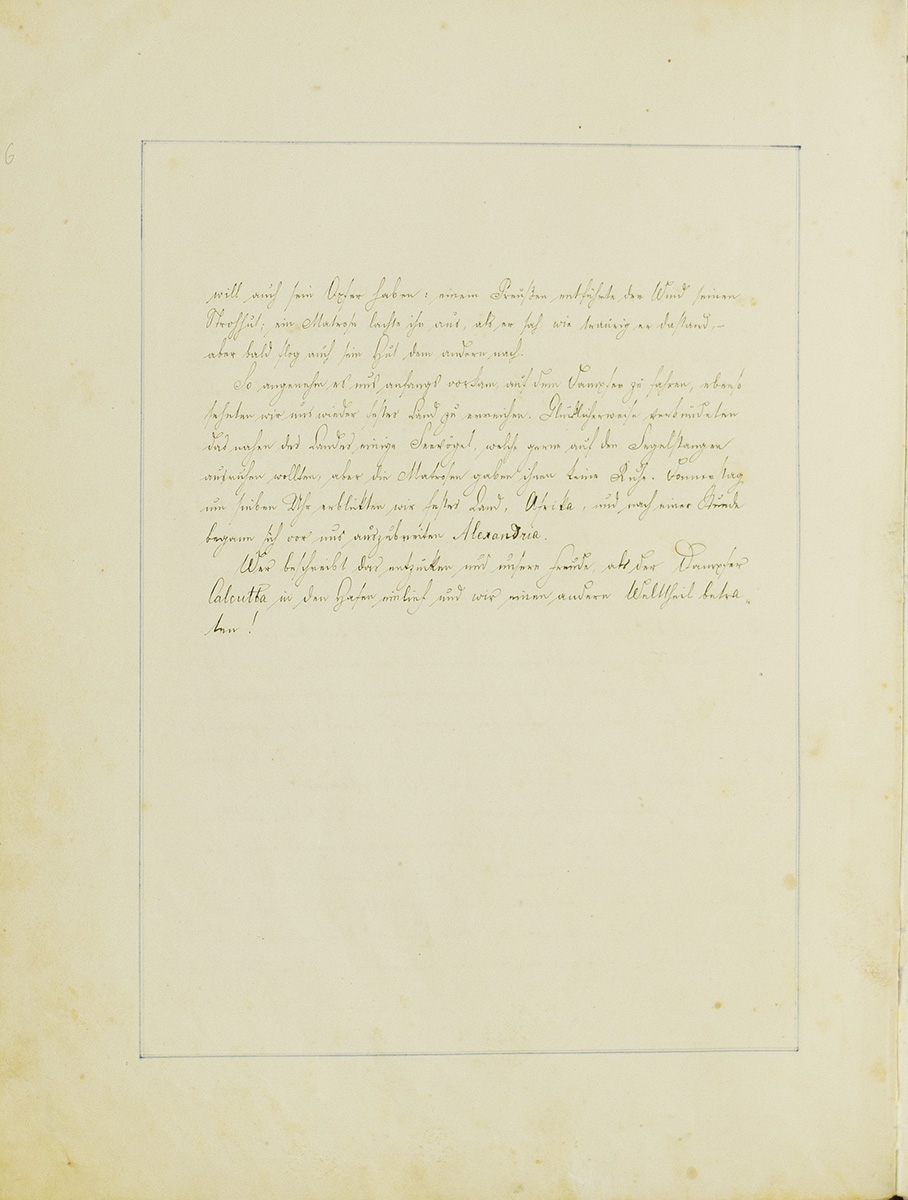 6
will auch sein Opfer haben: einem Preußen entführte der Wind seinen
Strohhut; ein Matrose lachte ihn aus, als er sah wie traurig er dastand, –
aber bald flog auch sein Hut dem andern nach.
So angenehm es uns anfangs vorkam auf dem Dampfer zu fahren, ebenso
sehnten wir uns wieder festes Land zu erreichen. Glücklicherweise verkündeten
das nahen des Landes einige Seevögel, welche gerne auf den Segelstangen
ausruhen wollten, aber die Matrosen gaben ihnen keine Ruhe. Donnerstag
um sieben Uhr erblickten wir festes Land, Afrika, und nach einer Stunde
begann sich vor uns auszubreiten Alexandria.
Wer beschreibt das entzücken und unsere Freude, als der Dampfer
Calcutta in den Hafen einlief und wir einen andern Welttheil betra-
ten!